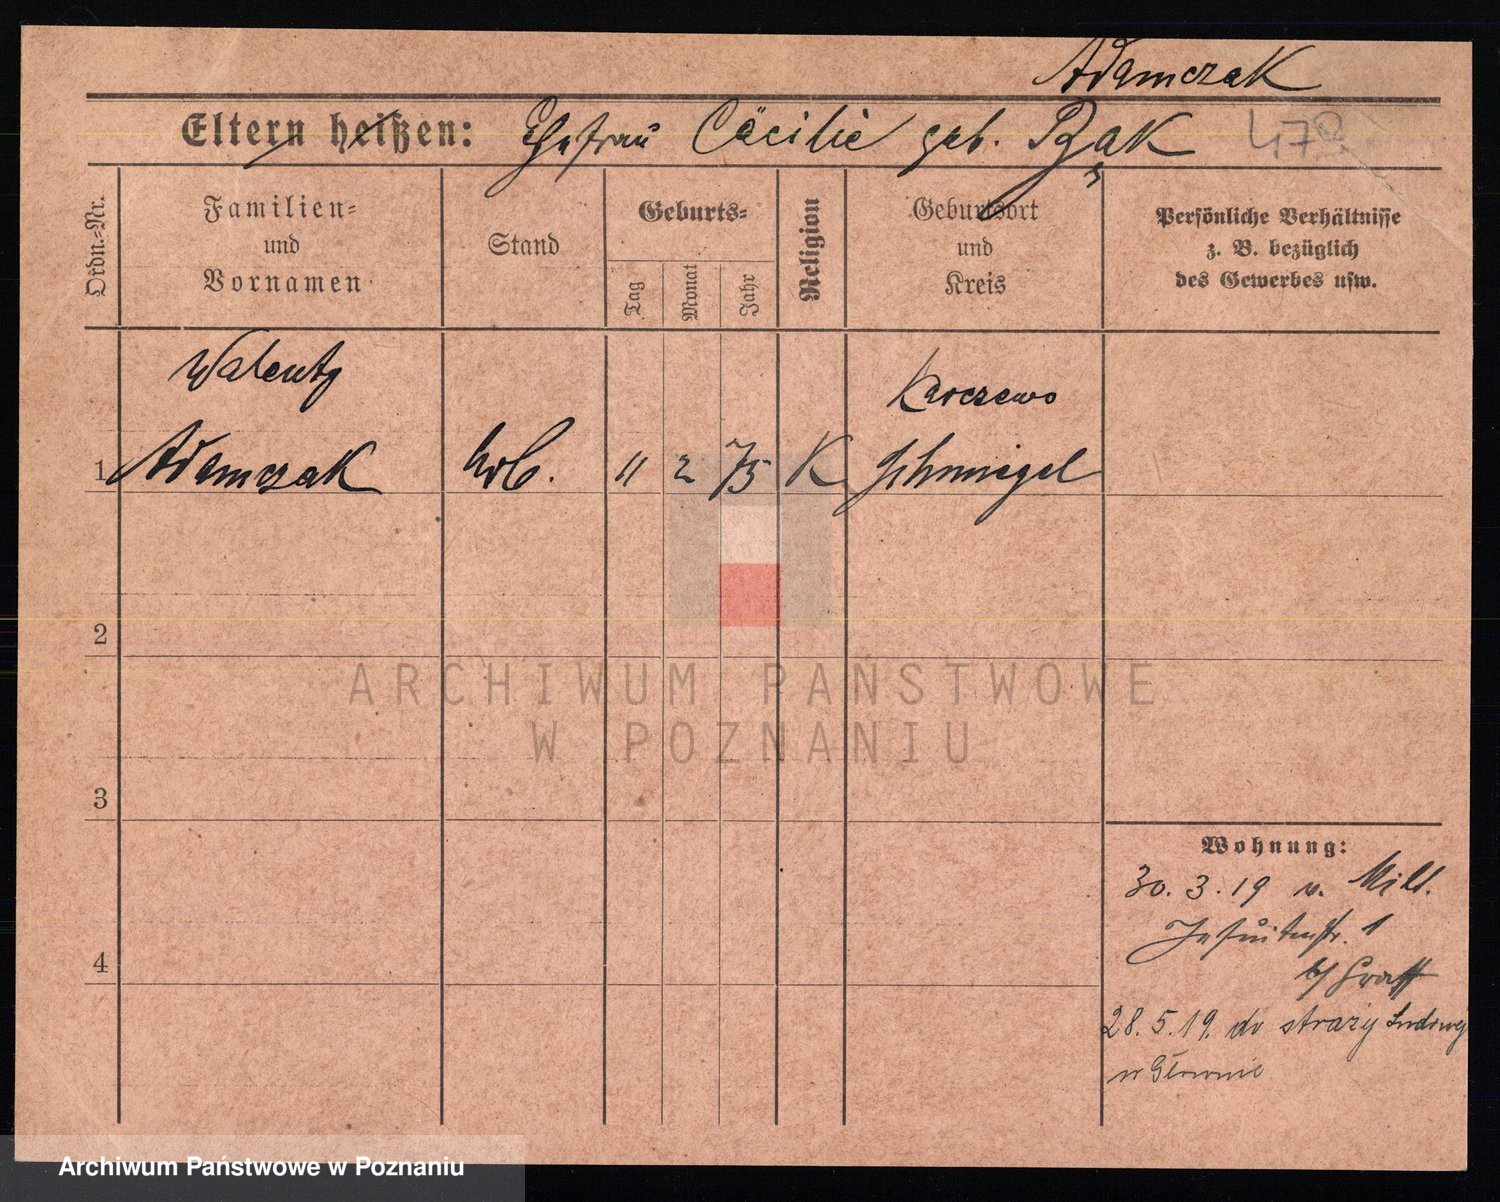 Adamczak
Eltern heißen: Ehefrau Cäcilie geb. Bąk 478
Ordn.-Nr.
Familien-
und
Vornamen
Stand
Geburts-
Tag
Monat
Jahr
Religion
Geburtsort
und
Kreis
Persönliche Verhältnisse
z. B. bezüglich
des Gewerbes usw.
Walenty Karczewo
1 Adamczak Arb. 11 2 75 K Schmiegel
2
ARCHIWUM PAŃSTWOWE
W POZNANIU
3
Wohnung:
30. 3. 19 v. Milt.
Jesuitenstr. 1
b/ Graff
4
28. 5. 19. do straży Ludowej
w Głównie
Archiwum Państwowe w Poznaniu